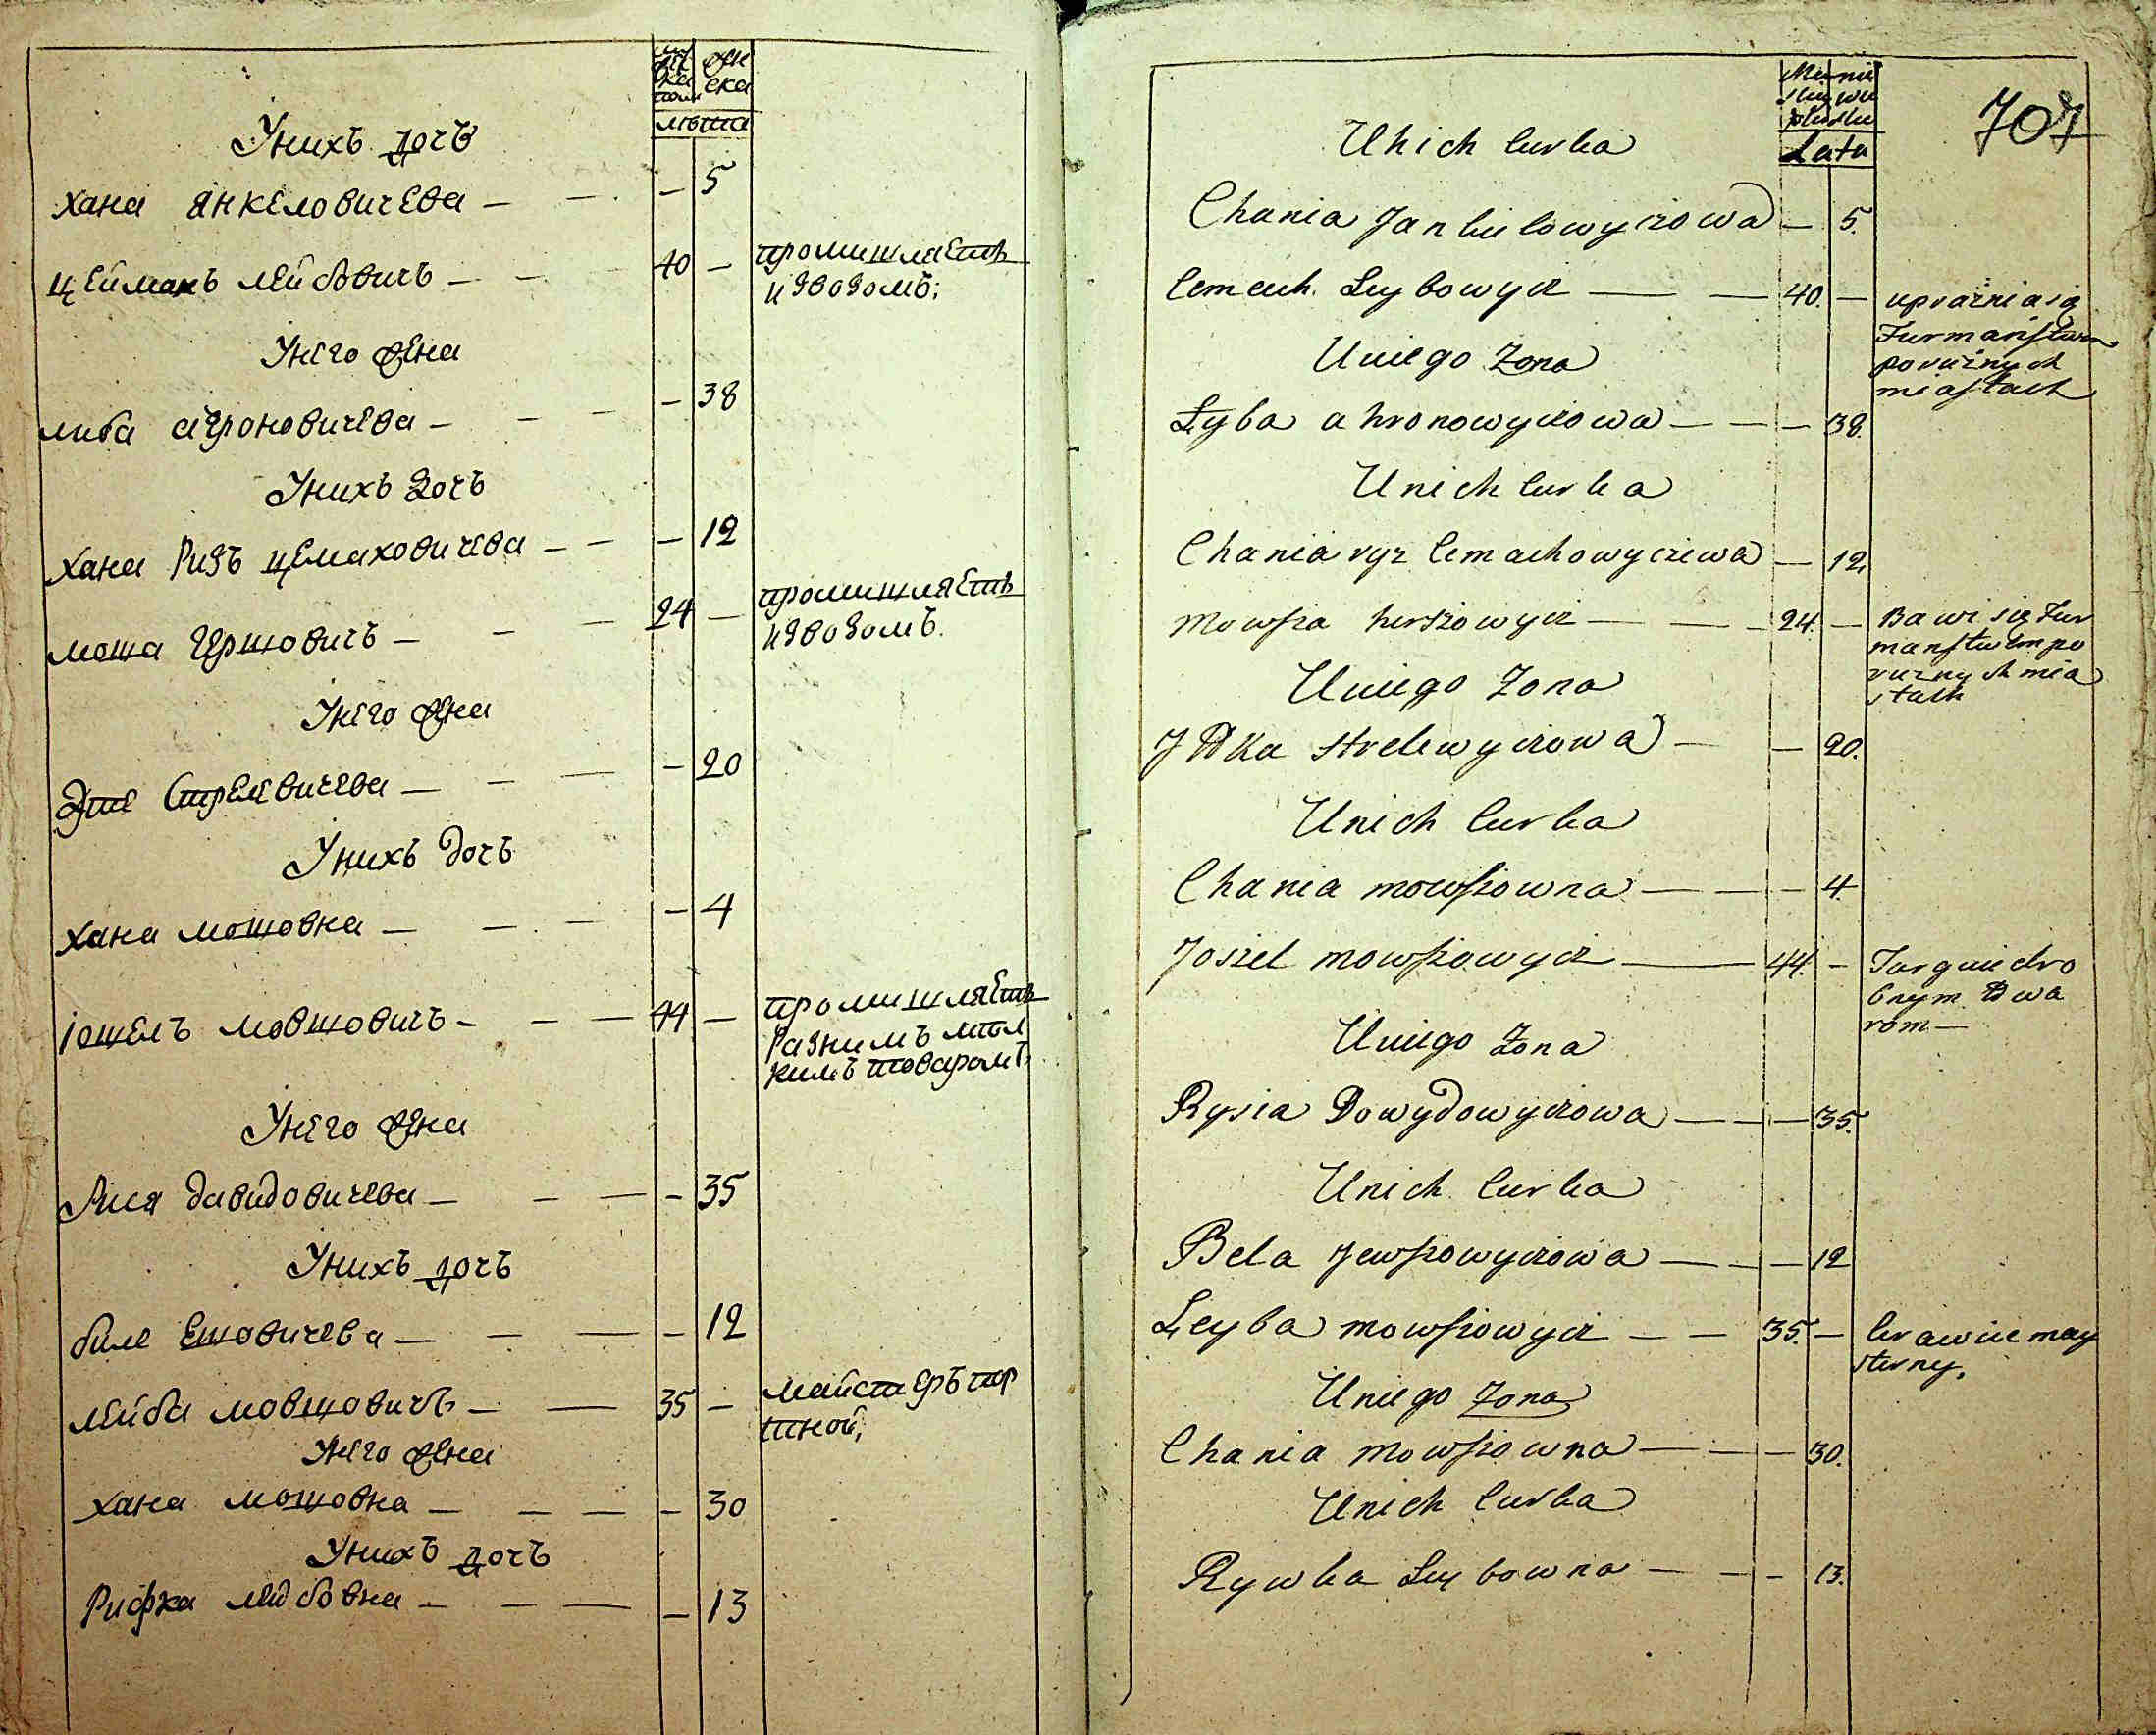 женска
лѣта
Унихъ дочь
хана Янкеловичева — — — 5
цеймахъ лейбовичъ — — 40 — промишляетъ
извозомъ;
Унего жена
либа агроновичева — — — 38
Унихъ дочъ
хана Ризъ цемаховичева — — — 12
моша Гершовичъ — — — 24 — промишляетъ
извозомъ.
Унего жена
Эте Стрелевичева — — — 20
Унихъ дочъ
хана мошовна — — — 4
іошелъ мовшовичъ — — — 44 — промишляетъ
Разнимъ мел
кимъ товаромъ
Унего жена
Рися давидовичева — — — 35
Унихъ дочъ
биле Ешовичева — — — 12
лейба мовшовичъ — — 35 — майстеръ пор
тной;
Унего жена
хана мошовна — — — 30
Унихъ дочъ
Рифка лейбовна — — — 13
707
Lata
Unich Curka
Chania Jankielowyczowa — 5.
Cemach Leybowycz — — 40. — upražnia się
Furmaństwem
po rużnych
miastach
Uniego Zona
Łyba ahronowyczowa — — — 38.
Unich Curka
Chania ryz Cemachowyczewa — 12.
Mowsza herszowycz — — 24. — Bawi się Fur
manstwem po
rużnych mia
stach
Uniego Zona
Jdka Strelewyczowa — — 20.
Unich Curka
Chania mowszowna — — — 4.
Joszel mowszowycz — 44. — Targuie dro
bnym towa
rom —
Uniego Zona
Rysia Dowydowyczowa — — — 35.
Unich Curka
Bela Jewszowyczowa — — — 12
Leyba mowszowycz — — 35. — Krawiec may
sterny.
Uniego Zona
Chania Mowszowna — — — 30.
Unich Curka
Rywka Leybowna — — — 13.